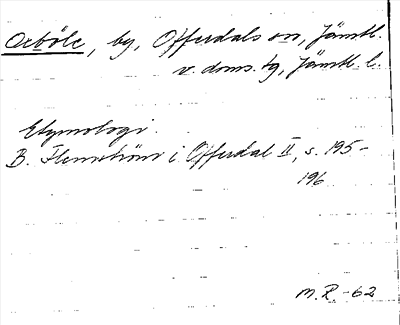 Acböle, by, Offerdals sn, Jämtl.
v. doms. tg, Jämtl. l.
Etymologi.
B. Flemström i Offerdal II, s. 195-
196
M.R. -62